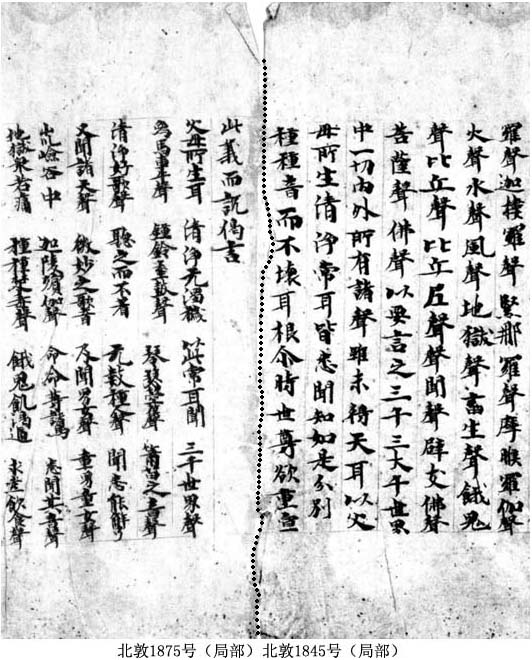 羅聲迦樓羅聲緊那羅聲摩睺羅伽聲
火聲水聲風聲地獄聲畜生聲餓鬼
聲比丘聲比丘尼聲聲聞聲辟支佛聲
菩薩聲佛聲以要言之三千三大千世界
中一切內外所有諸聲雖未得天耳以父
母所生清淨常耳皆悉聞知如是分別
種種音而不壞耳根尒時世尊欲重宣
此義而說偈言
父母所生耳 清淨无濁穢 以此常耳聞 三千世界聲
象馬車牛聲 鍾鈴螺鼓聲 琴瑟箜篌聲 簫笛之音聲
清淨好歌聲 聽之而不著 无數種人聲 聞悉能解了
又聞諸天聲 微妙之歌音 及聞男女聲 童男童女聲
山川嶮谷中 迦陵頻伽聲 命命等諸鳥 悉聞其音聲
地獄眾苦痛 種種楚毒聲 餓鬼飢渴逼 求索飲食聲
北敦1875号（局部）北敦1845号（局部）